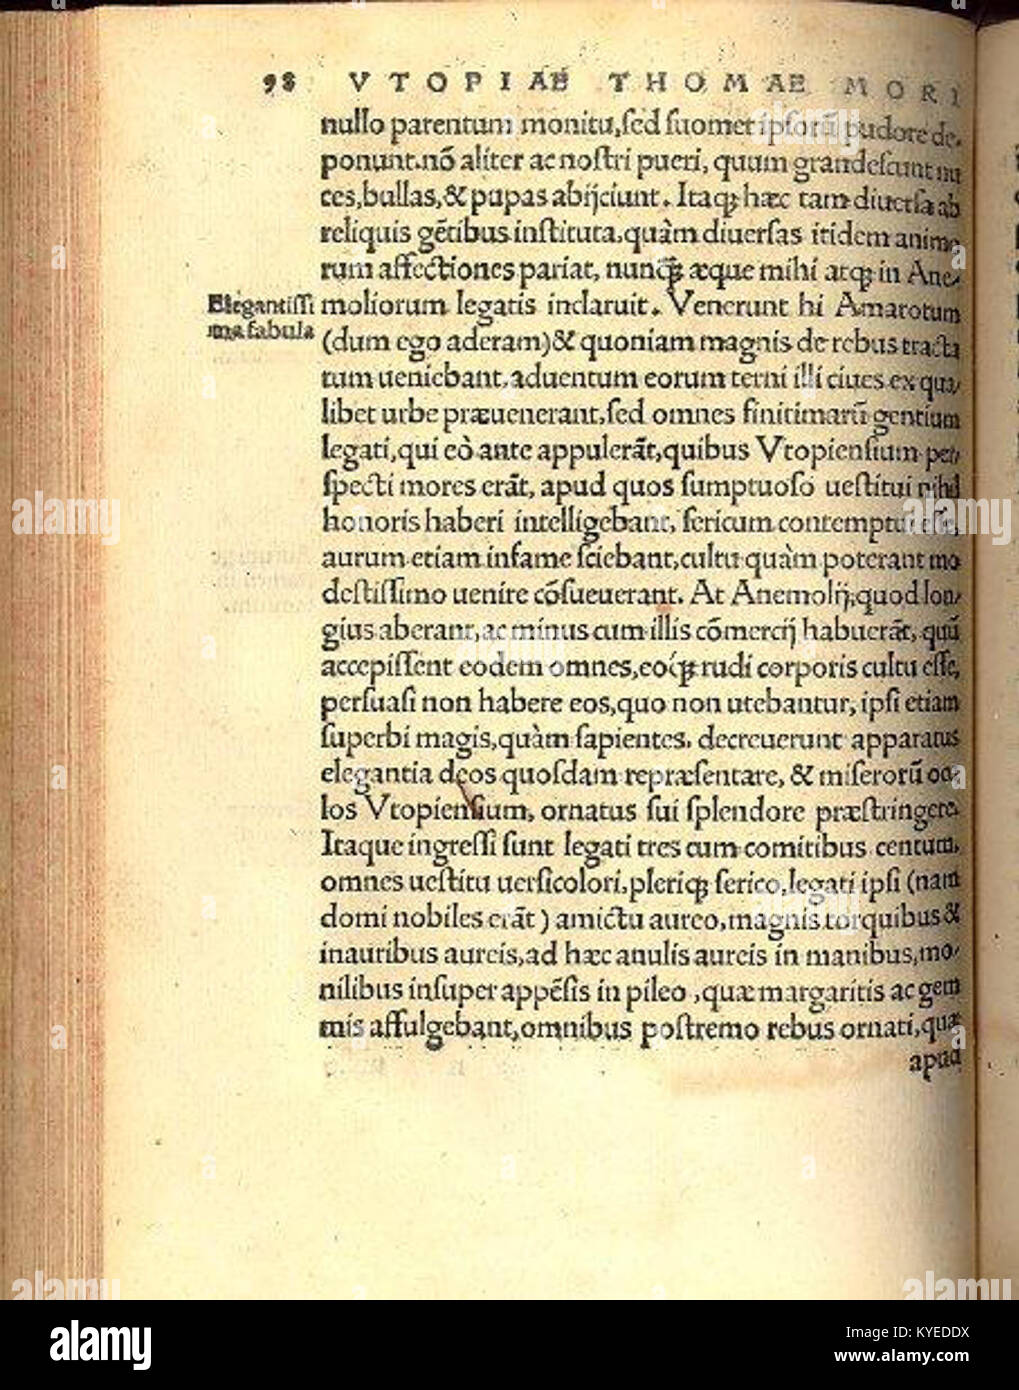 98 VTOPIAE THOMAE MORI
nullo parentum monitu, sed suomet ipsorũ pudore de-
ponunt. nõ aliter ac nostri pueri, quum grandescunt nu
ces, bullas, & pupas abijciunt. Itaqꝫ hæc tam diuersa ab
reliquis gẽtibus instituta, quàm diuersas itidem animo
rum affectiones pariat, nunꝗ̃ æque mihi atqꝫ in Ane-
Elegantissi
ma fabula
moliorum legatis inclaruit. Venerunt hi Amarotum
(dum ego aderam) & quoniam magnis de rebus tracta
tum ueniebant, aduentum eorum terni illi ciues ex qua-
libet urbe præuenerant, sed omnes finitimarũ gentium
legati, qui eò ante appulerãt, quibus Vtopiensium per-
specti mores erãt, apud quos sumptuoso uestitui nihil
honoris haberi intelligebant, sericum contemptui esse,
aurum etiam infame sciebant, cultu quàm poterant mo
destissimo uenire cõsueuerant. At Anemolij, quod lon-
gius aberant, ac minus cum illis cõmercij habuerãt, quũ
accepissent eodem omnes, eoqꝫ rudi corporis cultu esse,
persuasi non habere eos, quo non utebantur, ipsi etiam
superbi magis, quàm sapientes. decreuerunt apparatus
elegantia deos quosdam repræsentare, & miserorũ ocu
los Vtopiensium, ornatus sui splendore præstringere.
Itaque ingressi sunt legati tres cum comitibus centum,
omnes uestitu uersicolori, pleriqꝫ serico, legati ipsi (nam
domi nobiles erãt) amictu aureo, magnis torquibus &
inauribus aureis, ad hæc anulis aureis in manibus, mo-
nilibus insuper appẽsis in pileo, quæ margaritis ac gem
mis affulgebant, omnibus postremo rebus ornati, quæ
apud
alamy
alamy
Image ID: KYEDDX
www.alamy.com